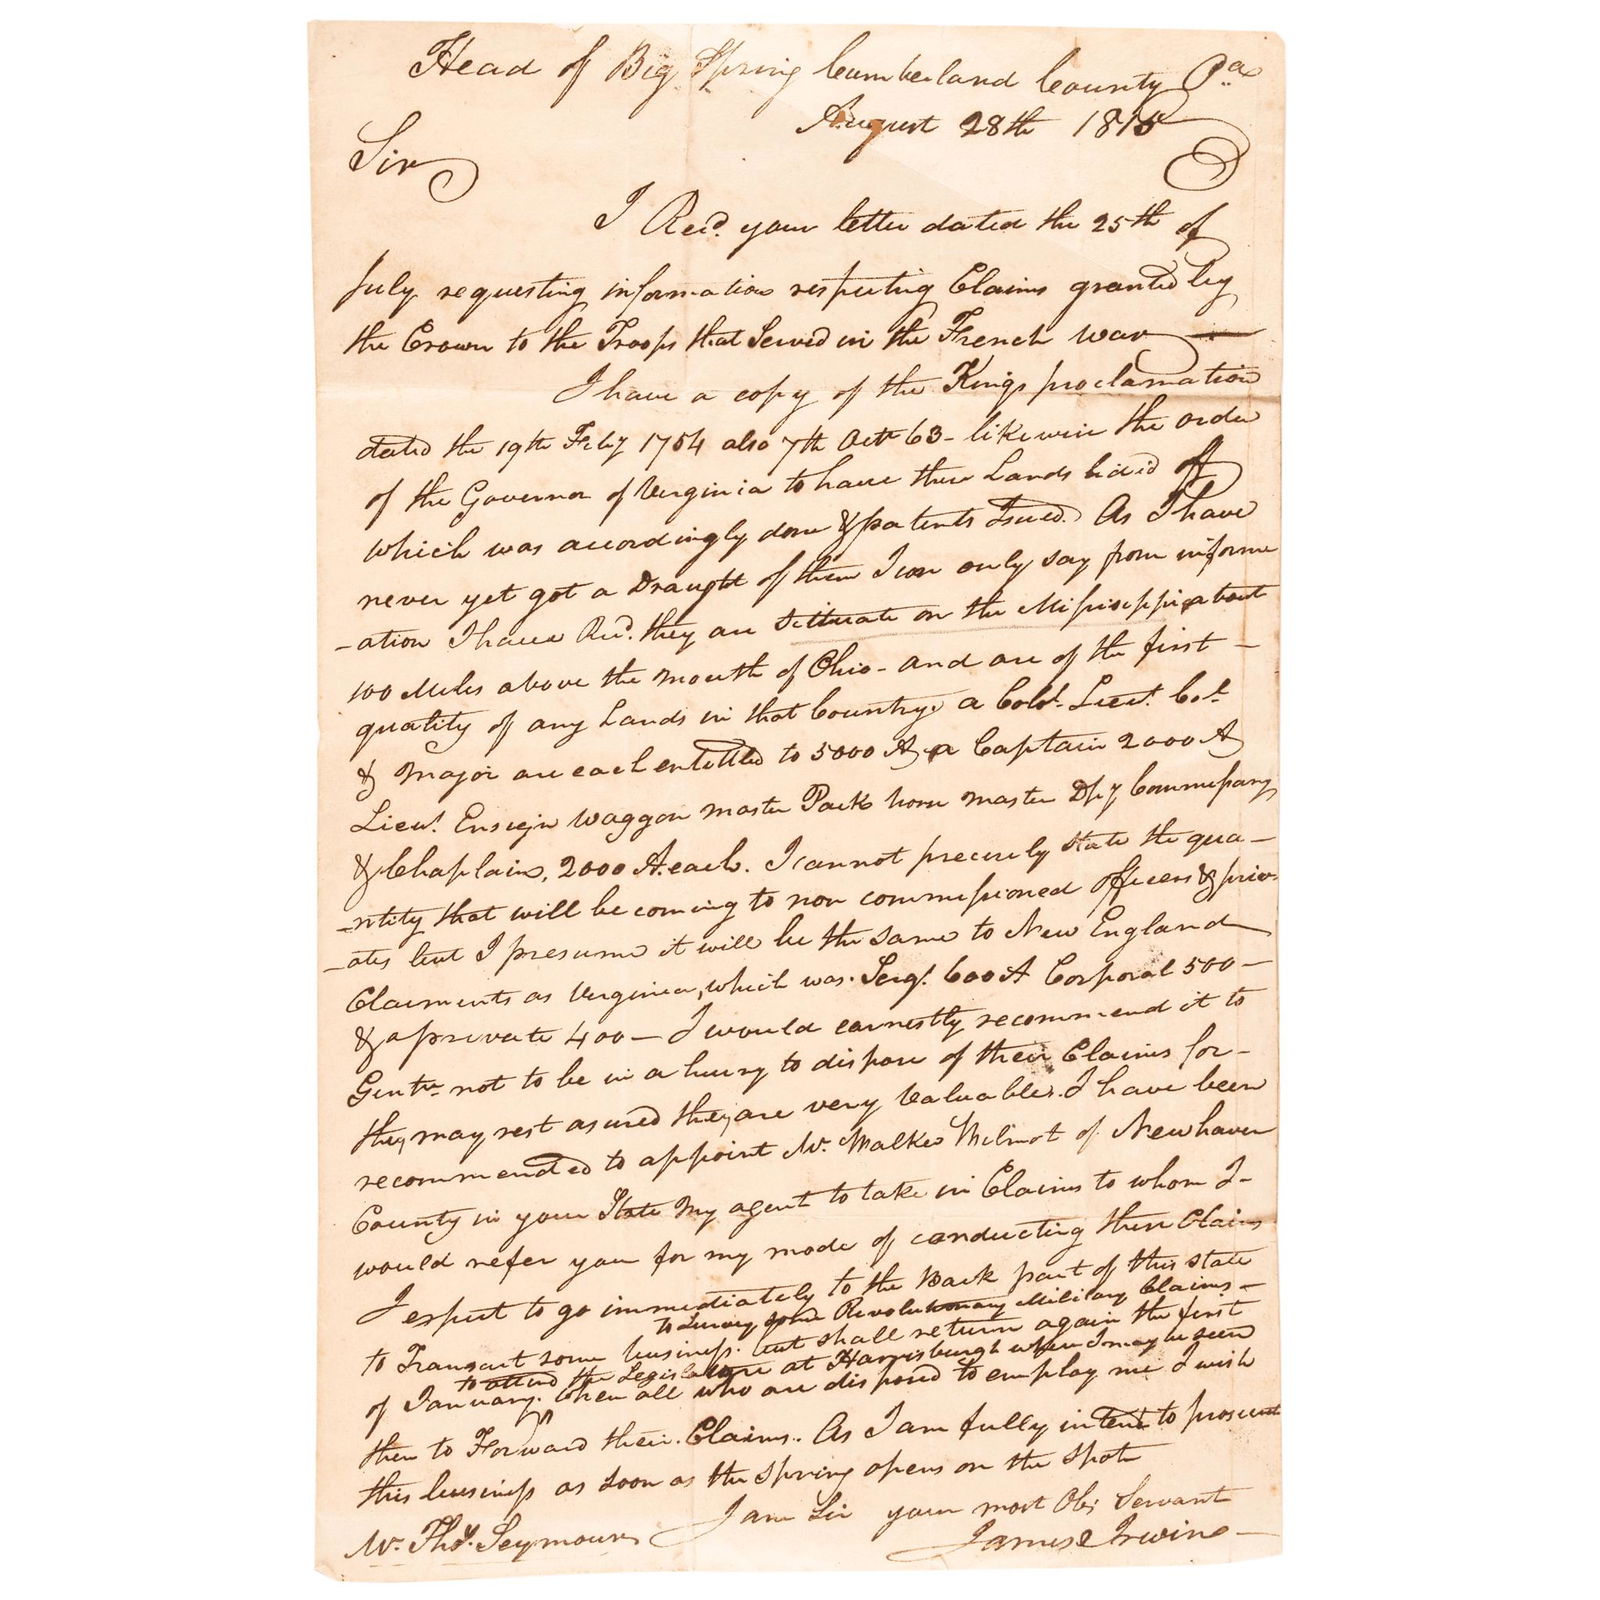 Head of Big Spring Cumberland County Pa
August 28th 1815
Sir
I Recd. your letter dated the 25th of
July requesting information respecting Claims granted by
the Crown to the Troops that Served in the French war
I have a copy of the Kings proclamation
dated the 19th Feby 1754 also 7th Octr 63 - likewise the order
of the Governor of Virginia to have these Lands laid off
which was accordingly done & patents Issued. As I have
never yet got a Draught of them I can only say from inform
-ation I have Recd. they are Situate on the Missisippi about
100 Miles above the mouth of Ohio - and are of the first -
quality of any Lands in that Country. a Colol. Lieut. Col.
& Major are each entittled to 5000 A a Captain 2000 A
Lieut. Ensign Waggon master Pack horse master Dpy Commissary
& Chaplain, 2000 A. each. I cannot precisely state the qua-
-ntity that will be coming to non commissioned officers & priv
-ates but I presume it will be the same to New England
Claiments as Virginia, which was. Sergt. 600 A Corporal 500 -
& a private 400 - I would earnestly recommend it to
Gentn. not to be in a hurry to dispose of their Claims for -
they may rest asured they are very Valuable. I have been
recommended to appoint Mr. Walker Wilmot of Newhaven
County in your State My agent to take in Claims to whom I -
would refer you for my mode of conducting these Claims
I expect to go immediately to the Back part of this state
to Survey some Revolutionary Military Claims -
to Transact some business. but shall return again the first
to attend the Legislature at Harrisburgh when I may be seen
of January. When all who are disposed to employ me I wish
then to Forward their Claims. As I am fully intent to prosecute
this business as soon as the Spring opens on the spot
I am Sir your most Obt Servant
Mr. Thos. Seymour James Irwine